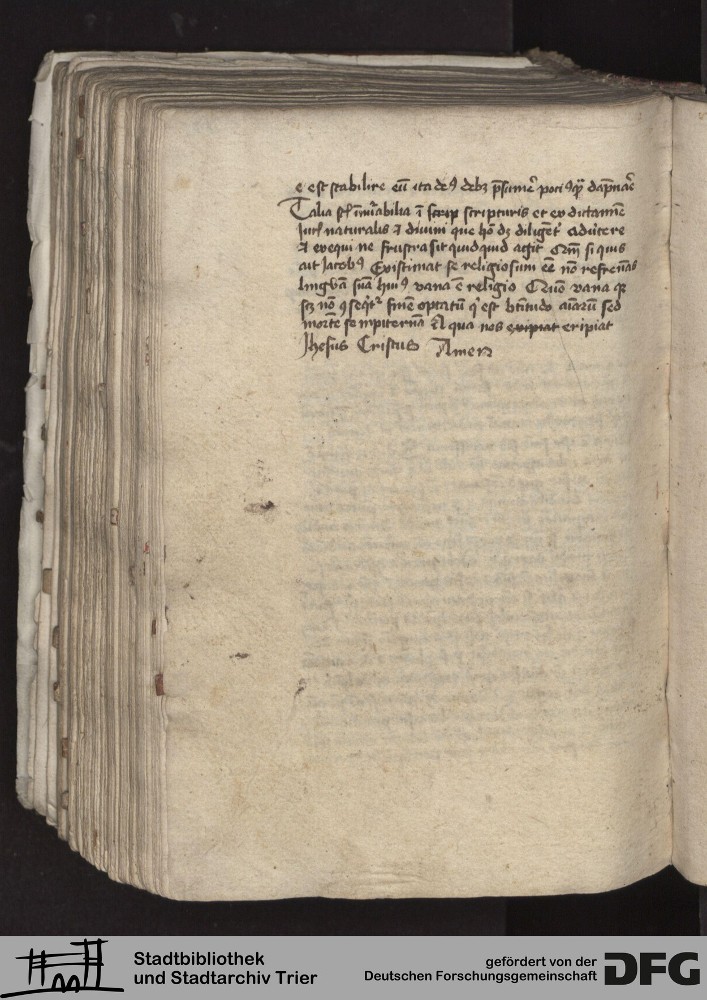 e est stabilire eū ita deꝰ debꝫ p̄sumē poci ꝙ̄ dāpnāe
Talia st īnūabilia ī scrip scripturis et ex dictamīe
Juris naturalis ⁊ divini que hō dꝫ diligēt aduertere
⁊ exequi ne frustra sit quidquid agit Qm̄ si quis
ait Jacobꝰ Existimat se religiosum eē nō refrenās
lingvā suā huiꝰ vana ē religio vana
scꝫ nō ꝯseqt᷑ finē optatū q est btitudo aīarū sed
mortē sempiternā A qua nos expiat eripiat
Jhesus Cristus Amen
Stadtbibliothek
und Stadtarchiv Trier
gefördert von der
Deutschen Forschungsgemeinschaft
DFG